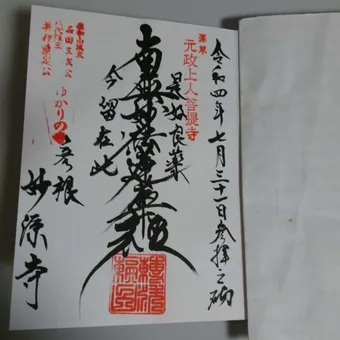 令和四年七月三十一日参拝之砌
深草
元政上人菩提寺
是好良薬
南無妙法蓮華経
今留在此
佐和山城主
石田三成公
ゆかりの
彦根
妙源寺